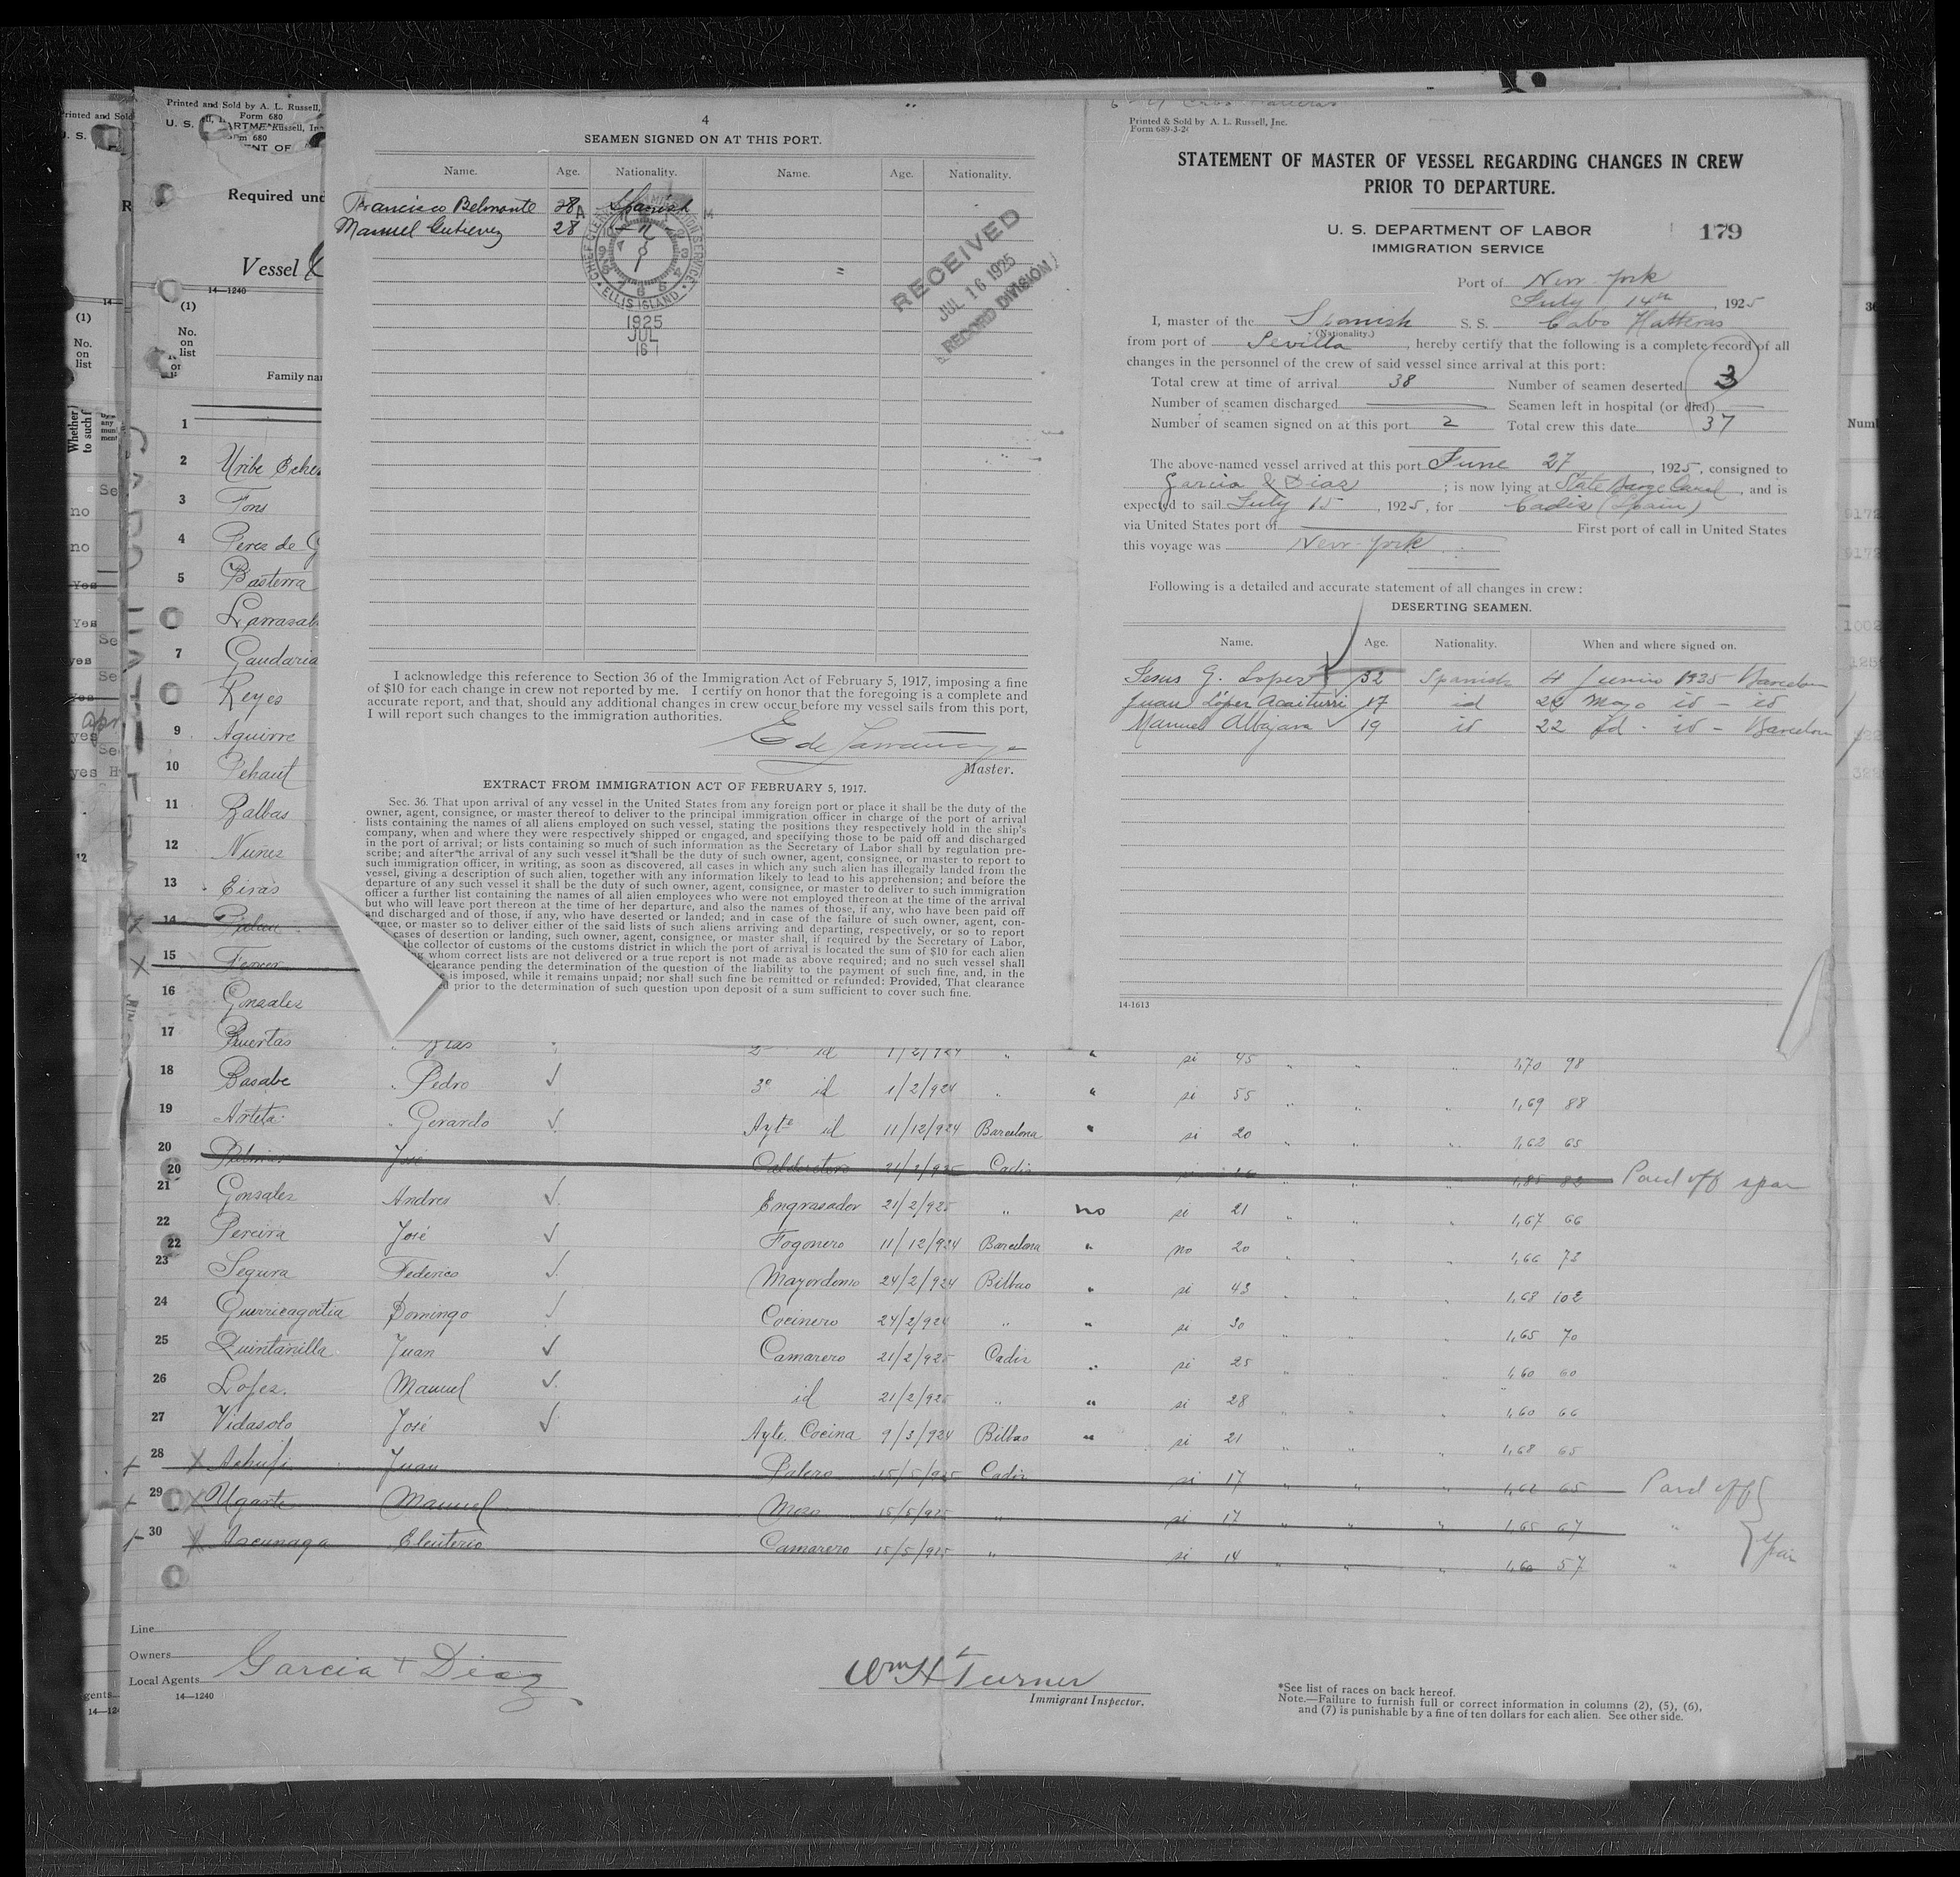 4
SEAMEN SIGNED ON AT THIS PORT.
Name. Age. Nationality. Name. Age. Nationality.
Francisco Belmonte 28 Spanish
Manuel Gutierrez 28
ELLIS ISLAND
1925
JUL
16
RECEIVED
JUL 16 1925
RECORD DIVISION
I acknowledge this reference to Section 36 of the Immigration Act of February 5, 1917, imposing a fine
of $10 for each change in crew not reported by me. I certify on honor that the foregoing is a complete and
accurate report, and that, should any additional changes in crew occur before my vessel sails from this port,
I will report such changes to the immigration authorities.
Master.
EXTRACT FROM IMMIGRATION ACT OF FEBRUARY 5, 1917.
Sec. 36. That upon arrival of any vessel in the United States from any foreign port or place it shall be the duty of the
owner, agent, consignee, or master thereof to deliver to the principal immigration officer in charge of the port of arrival
lists containing the names of all aliens employed on such vessel, stating the positions they respectively hold in the ship's
company, when and where they were respectively shipped or engaged, and specifying those to be paid off and discharged
in the port of arrival; or lists containing so much of such information as the Secretary of Labor shall by regulation pre-
scribe; and after the arrival of any such vessel it shall be the duty of such owner, agent, consignee, or master to report to
such immigration officer, in writing, as soon as discovered, all cases in which any such alien has illegally landed from the
vessel, giving a description of such alien, together with any information likely to lead to his apprehension; and before the
departure of any such vessel it shall be the duty of such owner, agent, consignee, or master to deliver to such immigration
officer a further list containing the names of all alien employees who were not employed thereon at the time of the arrival
but who will leave port thereon at the time of her departure, and also the names of those, if any, who have been paid off
and discharged and of those, if any, who have deserted or landed; and in case of the failure of such owner, agent, con-
nee, or master so to deliver either of the said lists of such aliens arriving and departing, respectively, or so to report
cases of desertion or landing, such owner, agent, consignee, or master shall, if required by the Secretary of Labor,
the collector of customs of the customs district in which the port of arrival is located the sum of $10 for each alien
whom correct lists are not delivered or a true report is not made as above required; and no such vessel shall
clearance pending the determination of the question of the liability to the payment of such fine, and, in the
is imposed, while it remains unpaid; nor shall such fine be remitted or refunded: Provided, That clearance
prior to the determination of such question upon deposit of a sum sufficient to cover such fine.
Printed & Sold by A. L. Russell, Inc.
Form 689-3-24
STATEMENT OF MASTER OF VESSEL REGARDING CHANGES IN CREW
PRIOR TO DEPARTURE.
U. S. DEPARTMENT OF LABOR
IMMIGRATION SERVICE
179
Port of New-York
July 14th, 1925
I, master of the Spanish S. S. Cabo Hatteras
(Nationality.)
from port of Sevilla, hereby certify that the following is a complete record of all
changes in the personnel of the crew of said vessel since arrival at this port:
Total crew at time of arrival 38 Number of seamen deserted 3
Number of seamen discharged Seamen left in hospital (or died)
Number of seamen signed on at this port 2 Total crew this date 37
The above-named vessel arrived at this port June 27, 1925, consigned to
Garcia & Diaz; is now lying at State Barge Canal, and is
expected to sail July 15, 1925, for Cadiz (Spain)
via United States port of First port of call in United States
this voyage was New-York
Following is a detailed and accurate statement of all changes in crew:
DESERTING SEAMEN.
Name. Age. Nationality. When and where signed on.
Jesus G. Lopez 32 Spanish 4 Junio 1925 Barcelona
Juan López Acaiturri 17 id 22 Mayo id - id
Manuel Albajara 19 id 22 id - id - Barcelona
14-1613
Printed and Sold by A. L. Russell,
Form 680
U. S.
Required und
Vessel
14-1240
(1)
No.
on
list
Family nam
1
2 Uribe Eche
3 Fons
4 Perez de G
5 Basterra
Larrasab
7 Gaudaria
Reyes
9 Aguirre
10 Pehaut
11 Balbas
12 Nunez
13 Eiras
14
15 Ferrer
16 Gonzalez
17 Puertas Blas 2º id 1/2/924 " " si 45 1,70 98
18 Basabe Pedro 3º id 1/2/924 " " si 55 1,69 88
19 Arteta Gerardo Aytº id 11/12/924 Barcelona " si 20 1,62 65
20 José Calderetero 21/2/925 Cadiz si 1,85 82 Paid off Spain
21 Gonzalez Andres Engrasador 21/2/925 " no si 21 1,67 66
22 Pereira José Fogonero 11/12/924 Barcelona " no 20 1,66 73
23 Segura Federico Mayordomo 24/2/924 Bilbao " si 43 1,68 102
24 Guerricagoitia Domingo Cocinero 24/2/924 " " si 30 1,65 70
25 Quintanilla Juan Camarero 21/2/925 Cadiz " si 25 1,60 60
26 Lopez Manuel id 21/2/925 " " si 28 1,60 66
27 Vidasolo José Ayte. Cocina 9/3/924 Bilbao " si 21 1,68 65
28 Juan Palero 15/5/925 Cadiz si 17 1,62 65 Paid off
29 Ugarte Manuel Mozo 15/5/925 " si 17 1,65 67 "
30 Ascunaga Eleuterio Camarero 15/5/925 " si 14 1,60 57 " Spain
Line
Owners
Local Agents Garcia & Diaz
14-1240
Wm H Turner
Immigrant Inspector.
*See list of races on back hereof.
Note.—Failure to furnish full or correct information in columns (2), (5), (6),
and (7) is punishable by a fine of ten dollars for each alien. See other side.